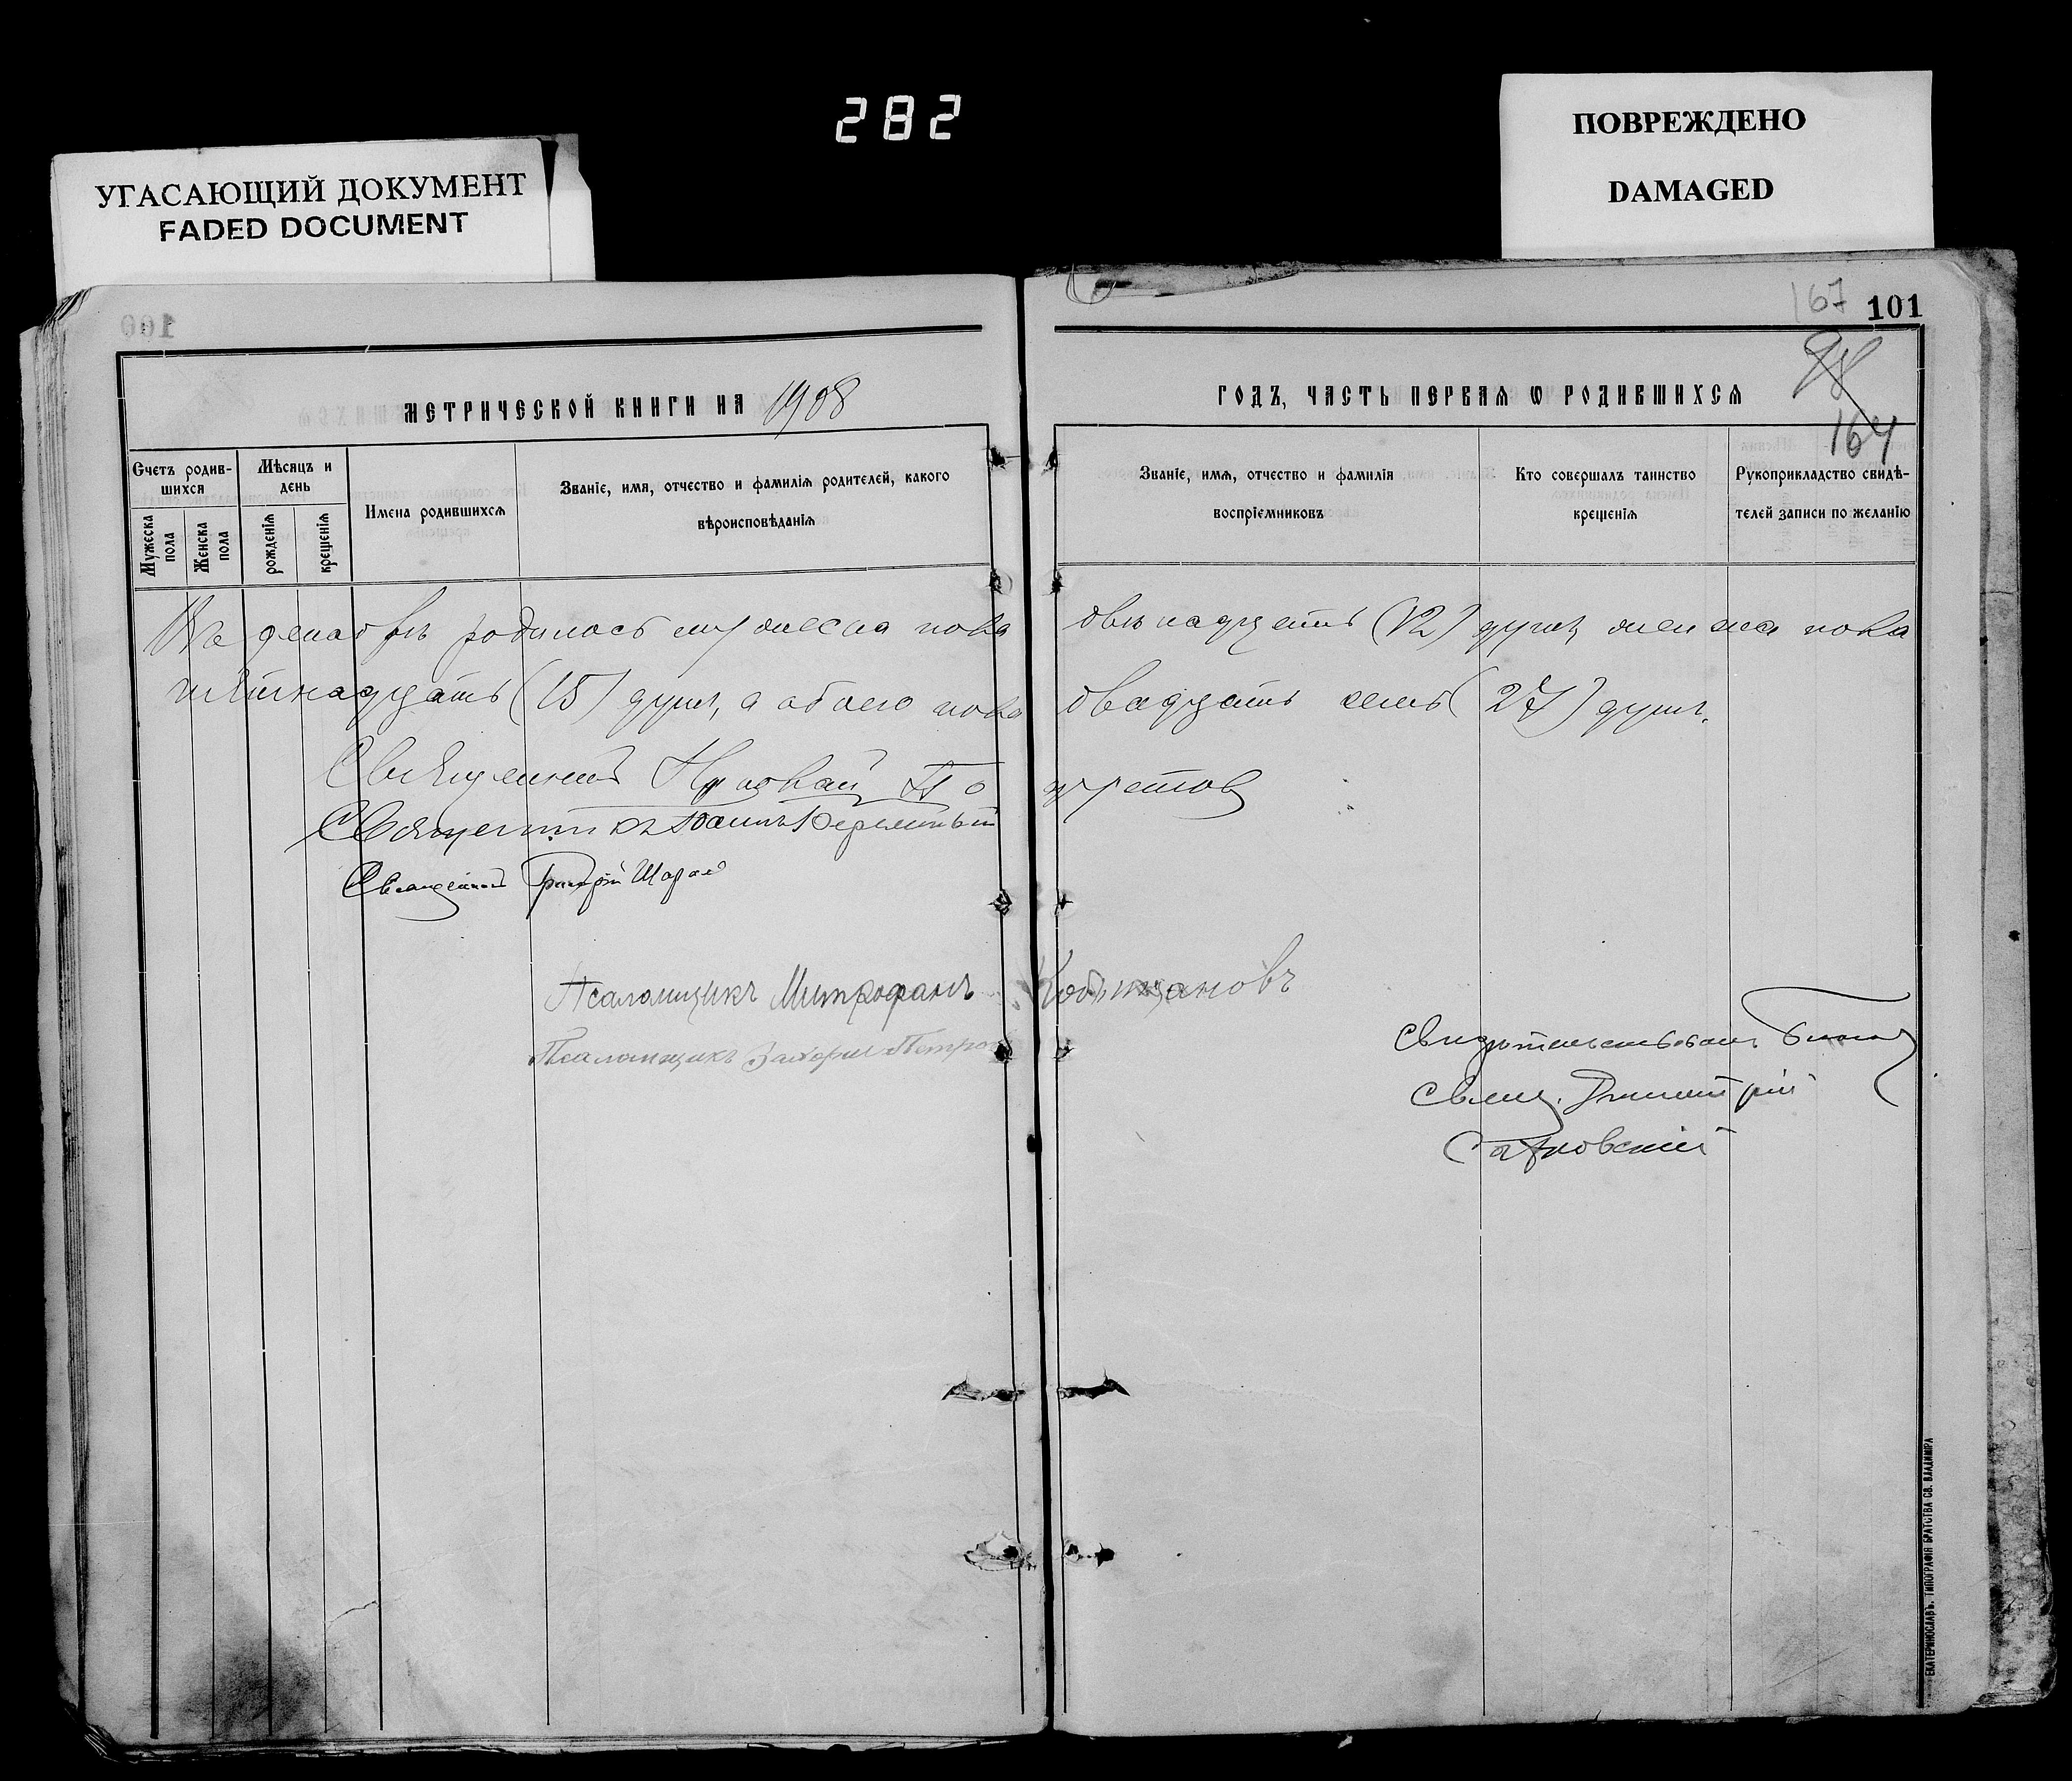 282
УГАСАЮЩИЙ ДОКУМЕНТ
FADED DOCUMENT
ПОВРЕЖДЕНО
DAMAGED
100
167 101
98
164
МЕТРИЧЕСКОЙ КНИГИ НА 1908
ГОДЪ, ЧАСТЬ ПЕРВАЯ Ѡ РОДИВШИХСЯ
Счетъ родив-
шихся
Мужеска пола
Женска пола
Мѣсяцъ и день
рожденія
крещенія
Имена родившихся
Званіе, имя, отчество и фамилія родителей, какого
вѣроисповѣданія
Званіе, имя, отчество и фамилія
воспріемниковъ
Кто совершалъ таинство
крещенія
Рукоприкладство свидѣ-
телей записи по желанію
декабрѣ родилось мужеска пола двѣнадцать (12) душъ, женска пола
пятнадцать (15) душъ, а обоего пола двадцать семь (27) душъ.
Священникъ
Священникъ Іоаннъ
Священникъ Григорій
Псаломщикъ Митрофанъ
Псаломщикъ Захарія
Свидѣтельствовалъ
Свящ. Димитрій
ЕКАТЕРИНОСЛАВЪ. ТИПОГРАФІЯ БРАТСТВА СВ. ВЛАДИМІРА